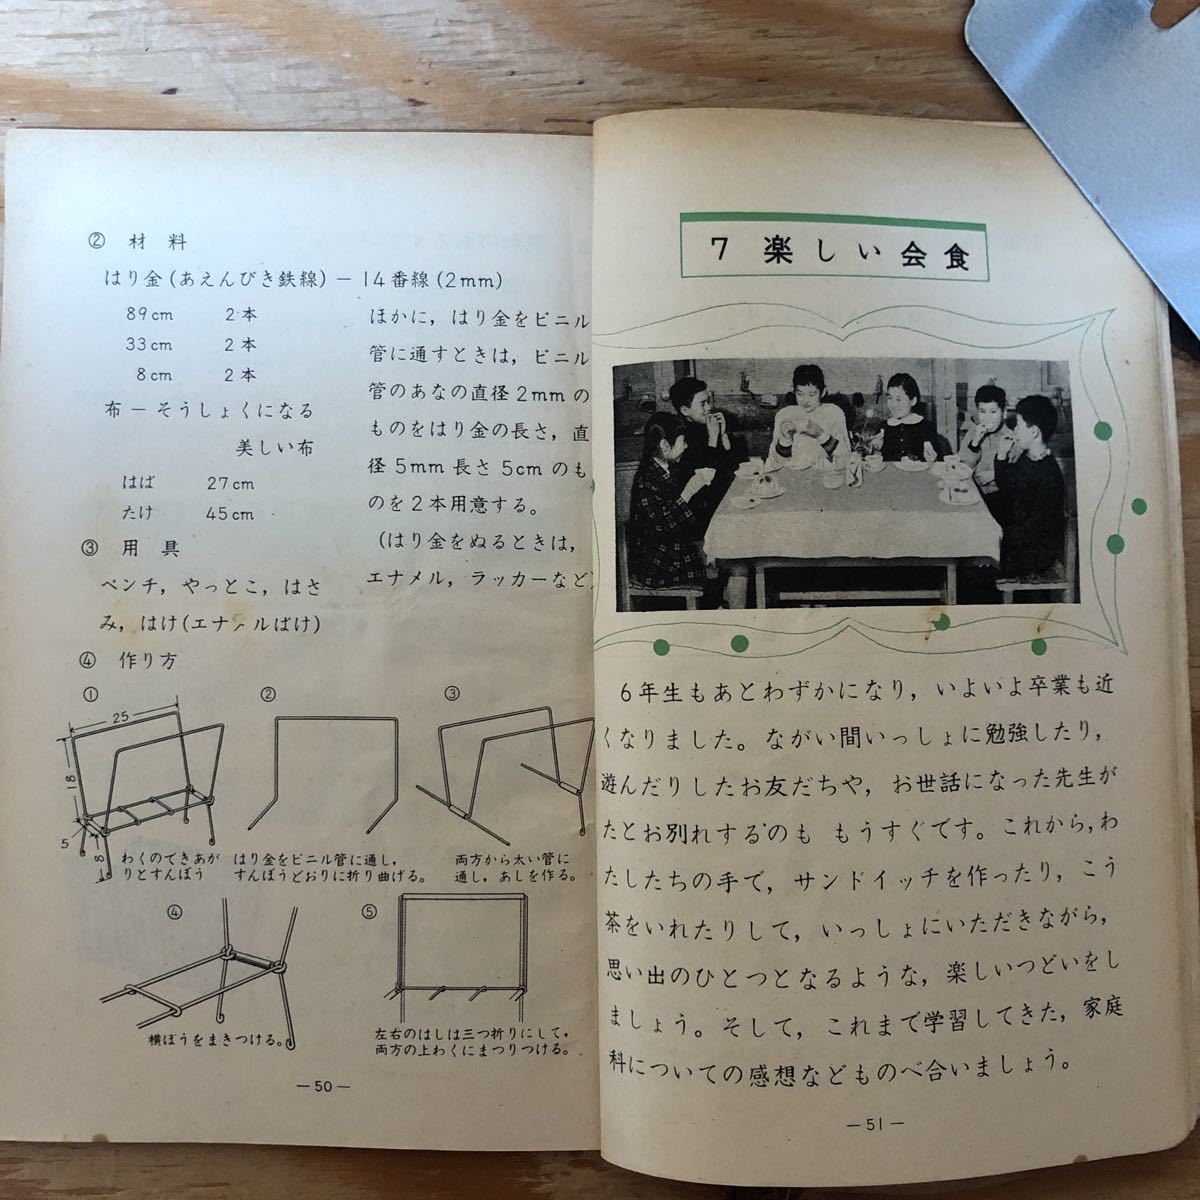 ② 材料
はり金(あえんびき鉄線)－14番線(2mm)
89cm 2本
33cm 2本
8cm 2本
布－そうしょくになる
美しい布
はば 27cm
たけ 45cm
③ 用具
ペンチ，やっとこ，はさ
み，はけ(エナメルばけ)
ほかに，はり金をビニル
管に通すときは，ビニル
管のあなの直径2mmの
ものをはり金の長さ，直
径5mm長さ5cmのも
のを2本用意する。
(はり金をぬるときは，
エナメル，ラッカーなど)
④ 作り方
①
25
18
5
8
わくのできあが
りとすんぽう
②
はり金をビニル管に通し，
すんぽうどおりに折り曲げる。
③
両方から太い管に
通し，あしを作る。
④
横ぼうをまきつける。
⑤
左右のはしは三つ折りにして，
両方の上わくにまつりつける。
－50－
7 楽しい会食
6年生もあとわずかになり，いよいよ卒業も近
くなりました。ながい間いっしょに勉強したり，
遊んだりしたお友だちや，お世話になった先生が
たとお別れするのも もうすぐです。これから，わ
たしたちの手で，サンドイッチを作ったり，こう
茶をいれたりして，いっしょにいただきながら，
思い出のひとつとなるような，楽しいつどいをし
ましょう。そして，これまで学習してきた，家庭
科についての感想などものべ合いましょう。
－51－